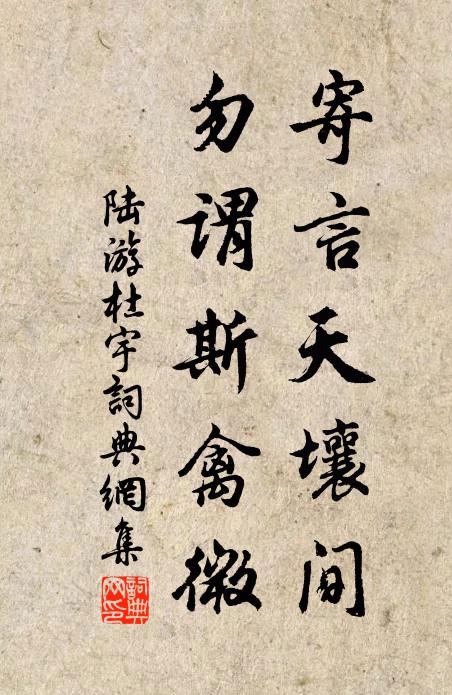 寄言天壤間
勿谓斯禽微
陆游杜宇詞典網集
詞典网印